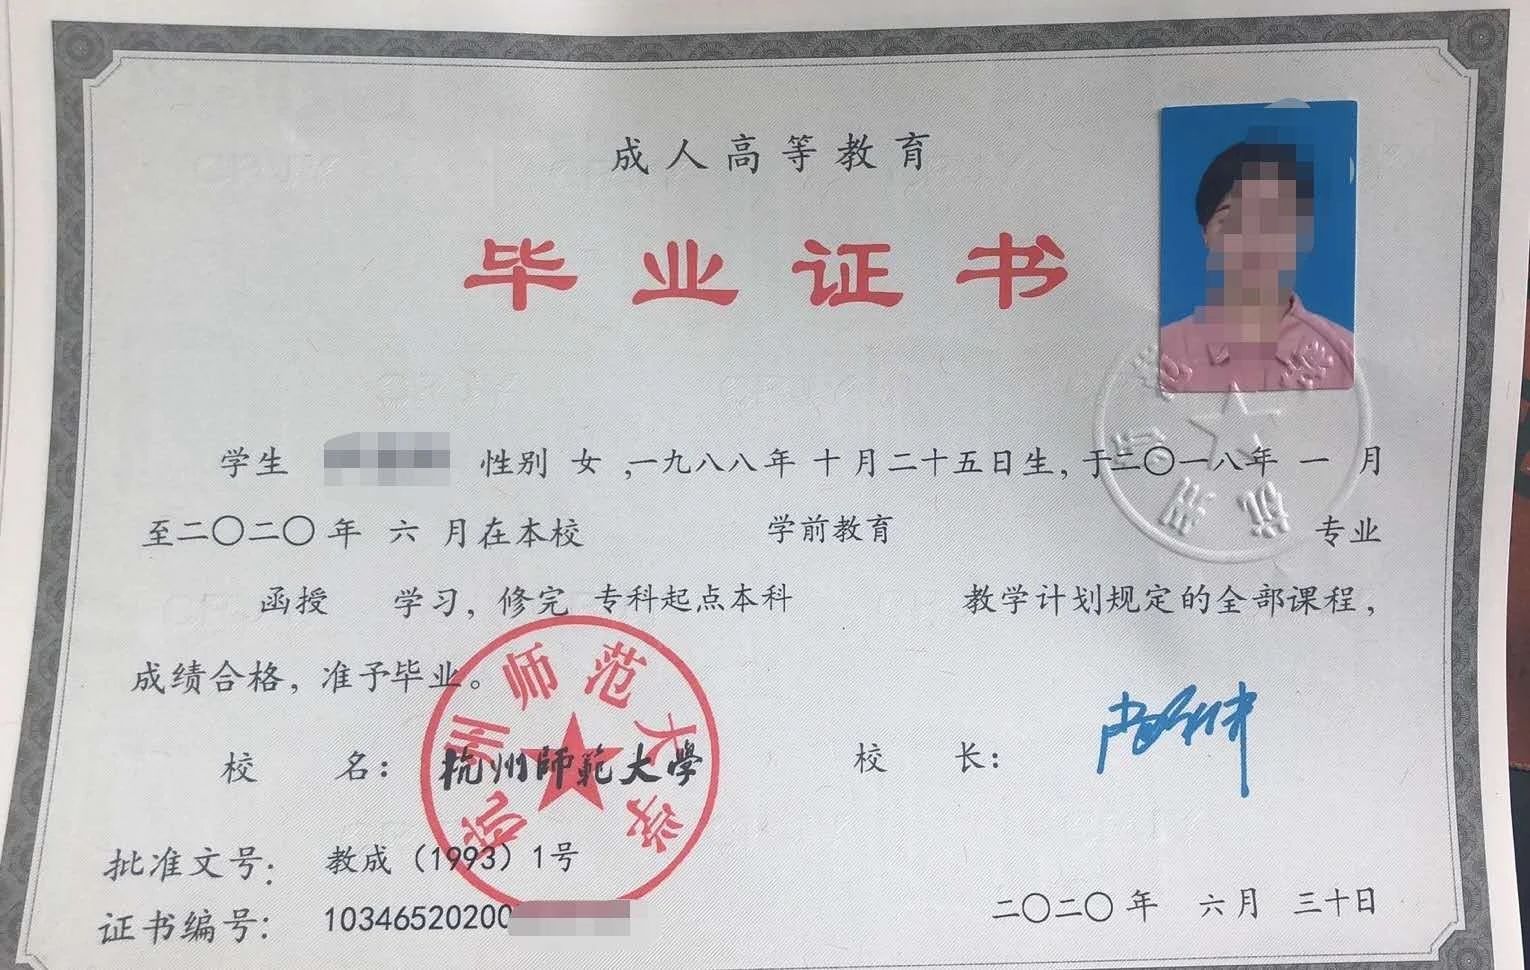 成人高等教育
毕业证书
学生 性别 女 ,一九八八年 十月二十五日生, 于二〇一八年 一 月
至二〇二〇年 六 月在本校 学前教育 专业
函授 学习, 修完 专科起点本科 教学计划规定的全部课程,
成绩合格, 准予毕业。
杭州师范大学
校 名: 杭州师範大學 校 长:
批准文号: 教成 (1993) 1号
证书编号: 10346520200
二〇二〇年 六月 三十日